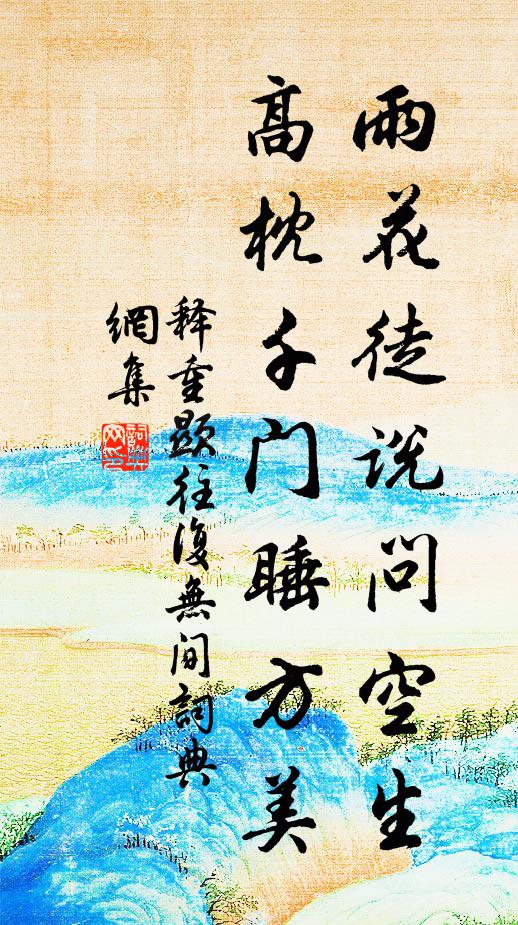 雨花徒说问空生
高枕千门睡方美
释重顯往復無间詞典
網集